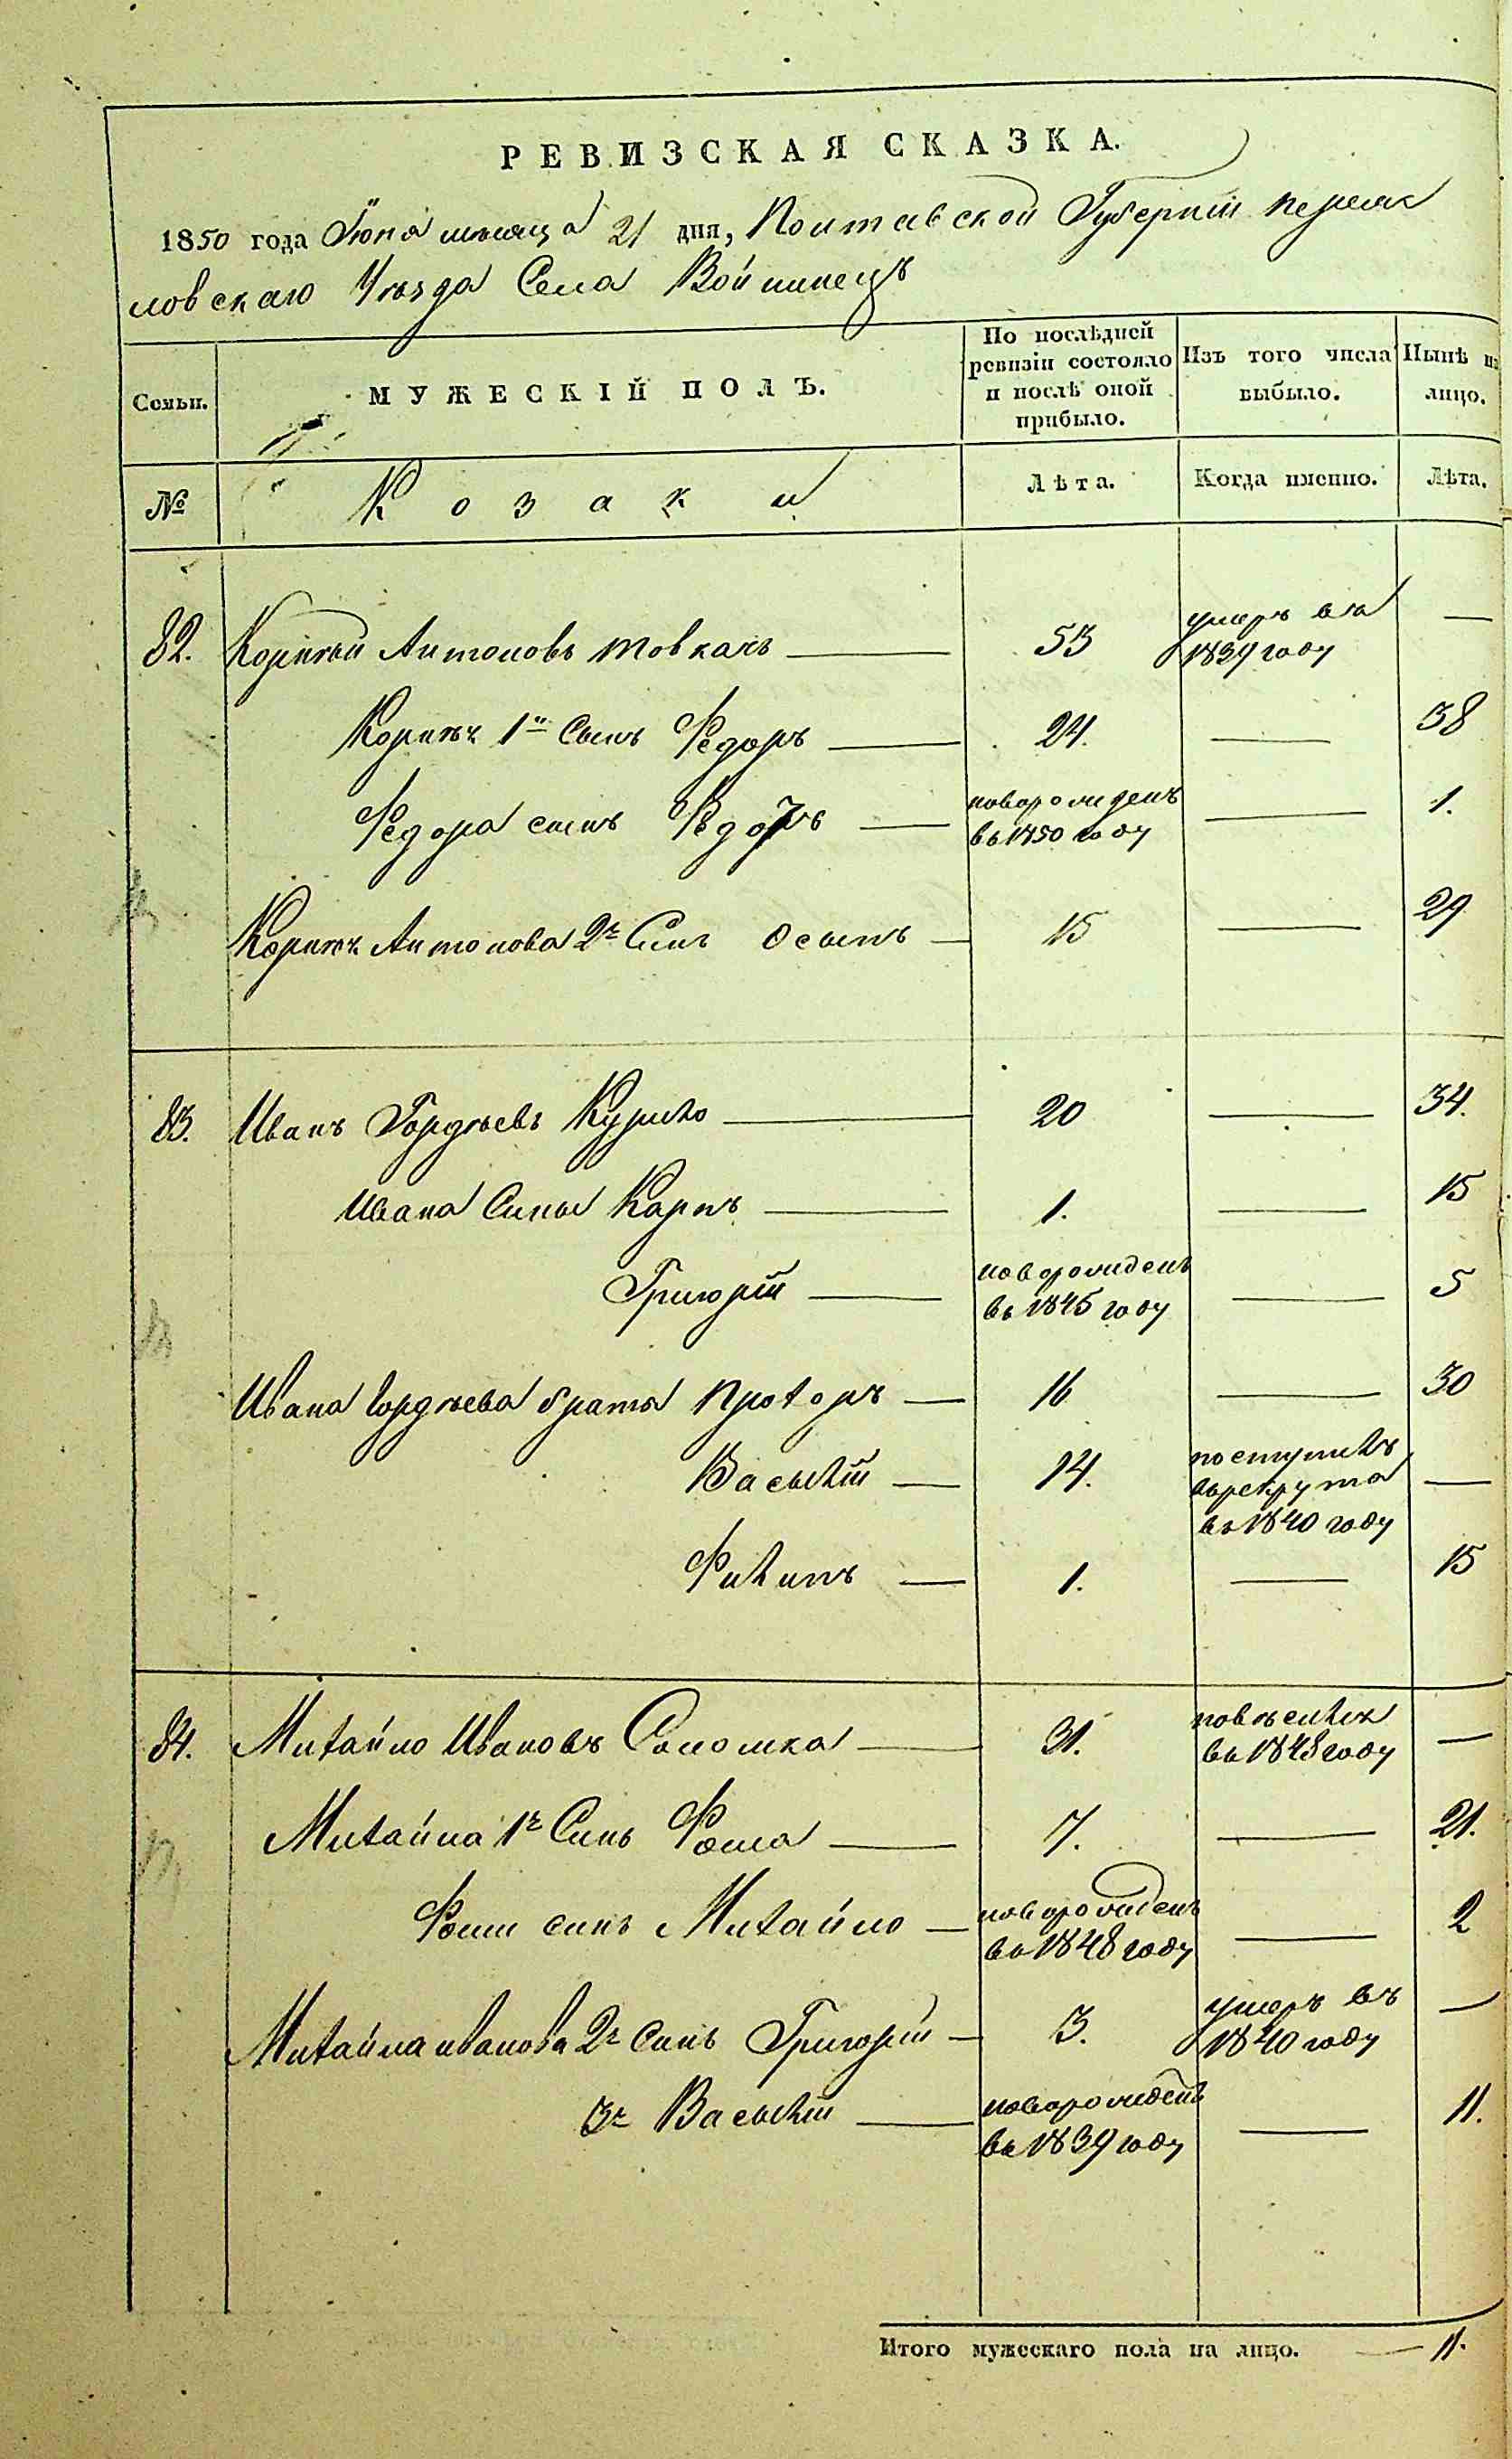 РЕВИЗСКАЯ СКАЗКА.
1850 года Іюня мѣсяца 21 дня, Полтавской Губерніи Переяс
ловскаго Уѣзда Села Войтинецъ
Семьи. МУЖЕСКІЙ ПОЛЪ. По послѣдней ревизіи состояло и послѣ оной прибыло. Изъ того числа выбыло. Нынѣ на лицо.
№ Козаки Лѣта. Когда именно. Лѣта.
82. Корнѣй Антоновъ Товкачъ 53 умеръ въ 1839 году —
Корнѣя 1й Сынъ Федоръ 24. — 38
Федора сынъ Федоръ новорожденъ въ 1850 году — 1.
Корнѣя Антонова 2й Синъ Осыпъ 15 — 29
83. Иванъ Гордѣевъ Курило 20 — 34.
Ивана Сины Карпъ 1. — 15
Григорій новорожденъ въ 1845 году — 5
Ивана Гордѣева братья Прохоръ 16 — 30
Василій 14. поступилъ въ рекрута въ 1840 году —
Филипъ 1. — 15
84. Михайло Ивановъ Соломка 31. въ 1848 году —
Михайла 1й Синъ Фома 7. — 21.
Фоми синъ Михайло новорожденъ въ 1848 году — 2
Михайла Иванова 2й Синъ Григорій 3. умеръ въ 1840 году —
3й Василій новорожденъ въ 1839 году — 11.
Итого мужескаго пола на лицо. — 11.